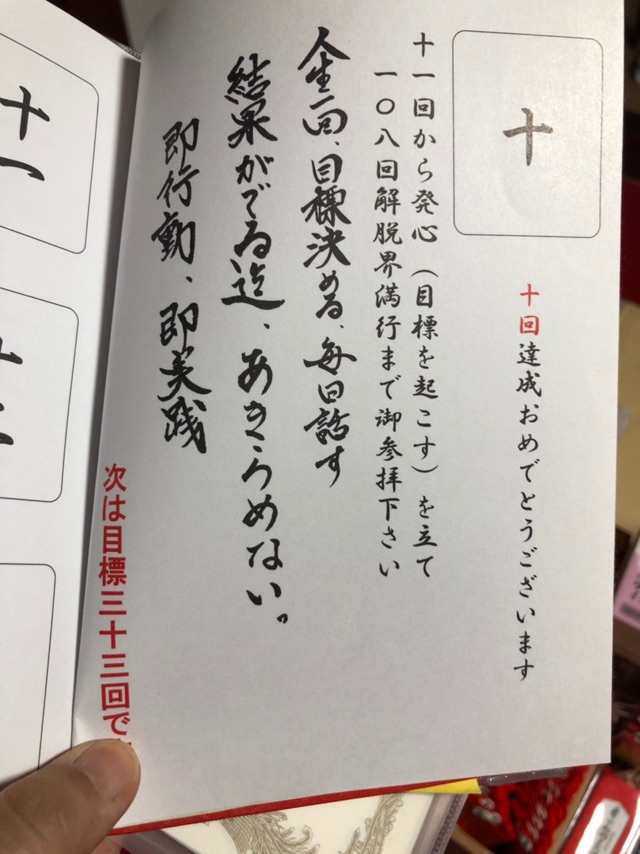 十
十回達成おめでとうございます
十一回から発心（目標を起こす）を立て
一〇八回解脱界満行まで御参拝下さい
人生一回、目標決める、毎日話す
結果がでる迄、あきらめない。
即行動、即実践
次は目標三十三回で
十一